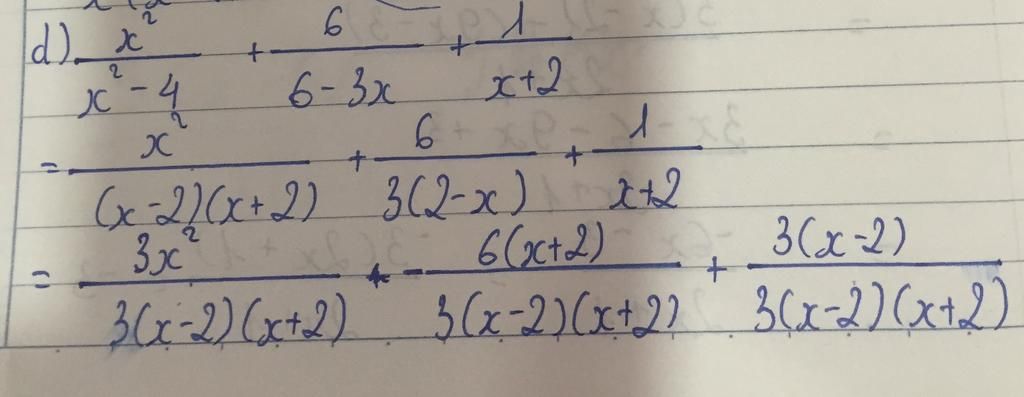 d) x²/(x² - 4) + 6/(6 - 3x) + 1/(x+2)
= x²/((x-2)(x+2)) + 6/(3(2-x)) + 1/(x+2)
= 3x²/(3(x-2)(x+2)) + - 6(x+2)/(3(x-2)(x+2)) + 3(x-2)/(3(x-2)(x+2))